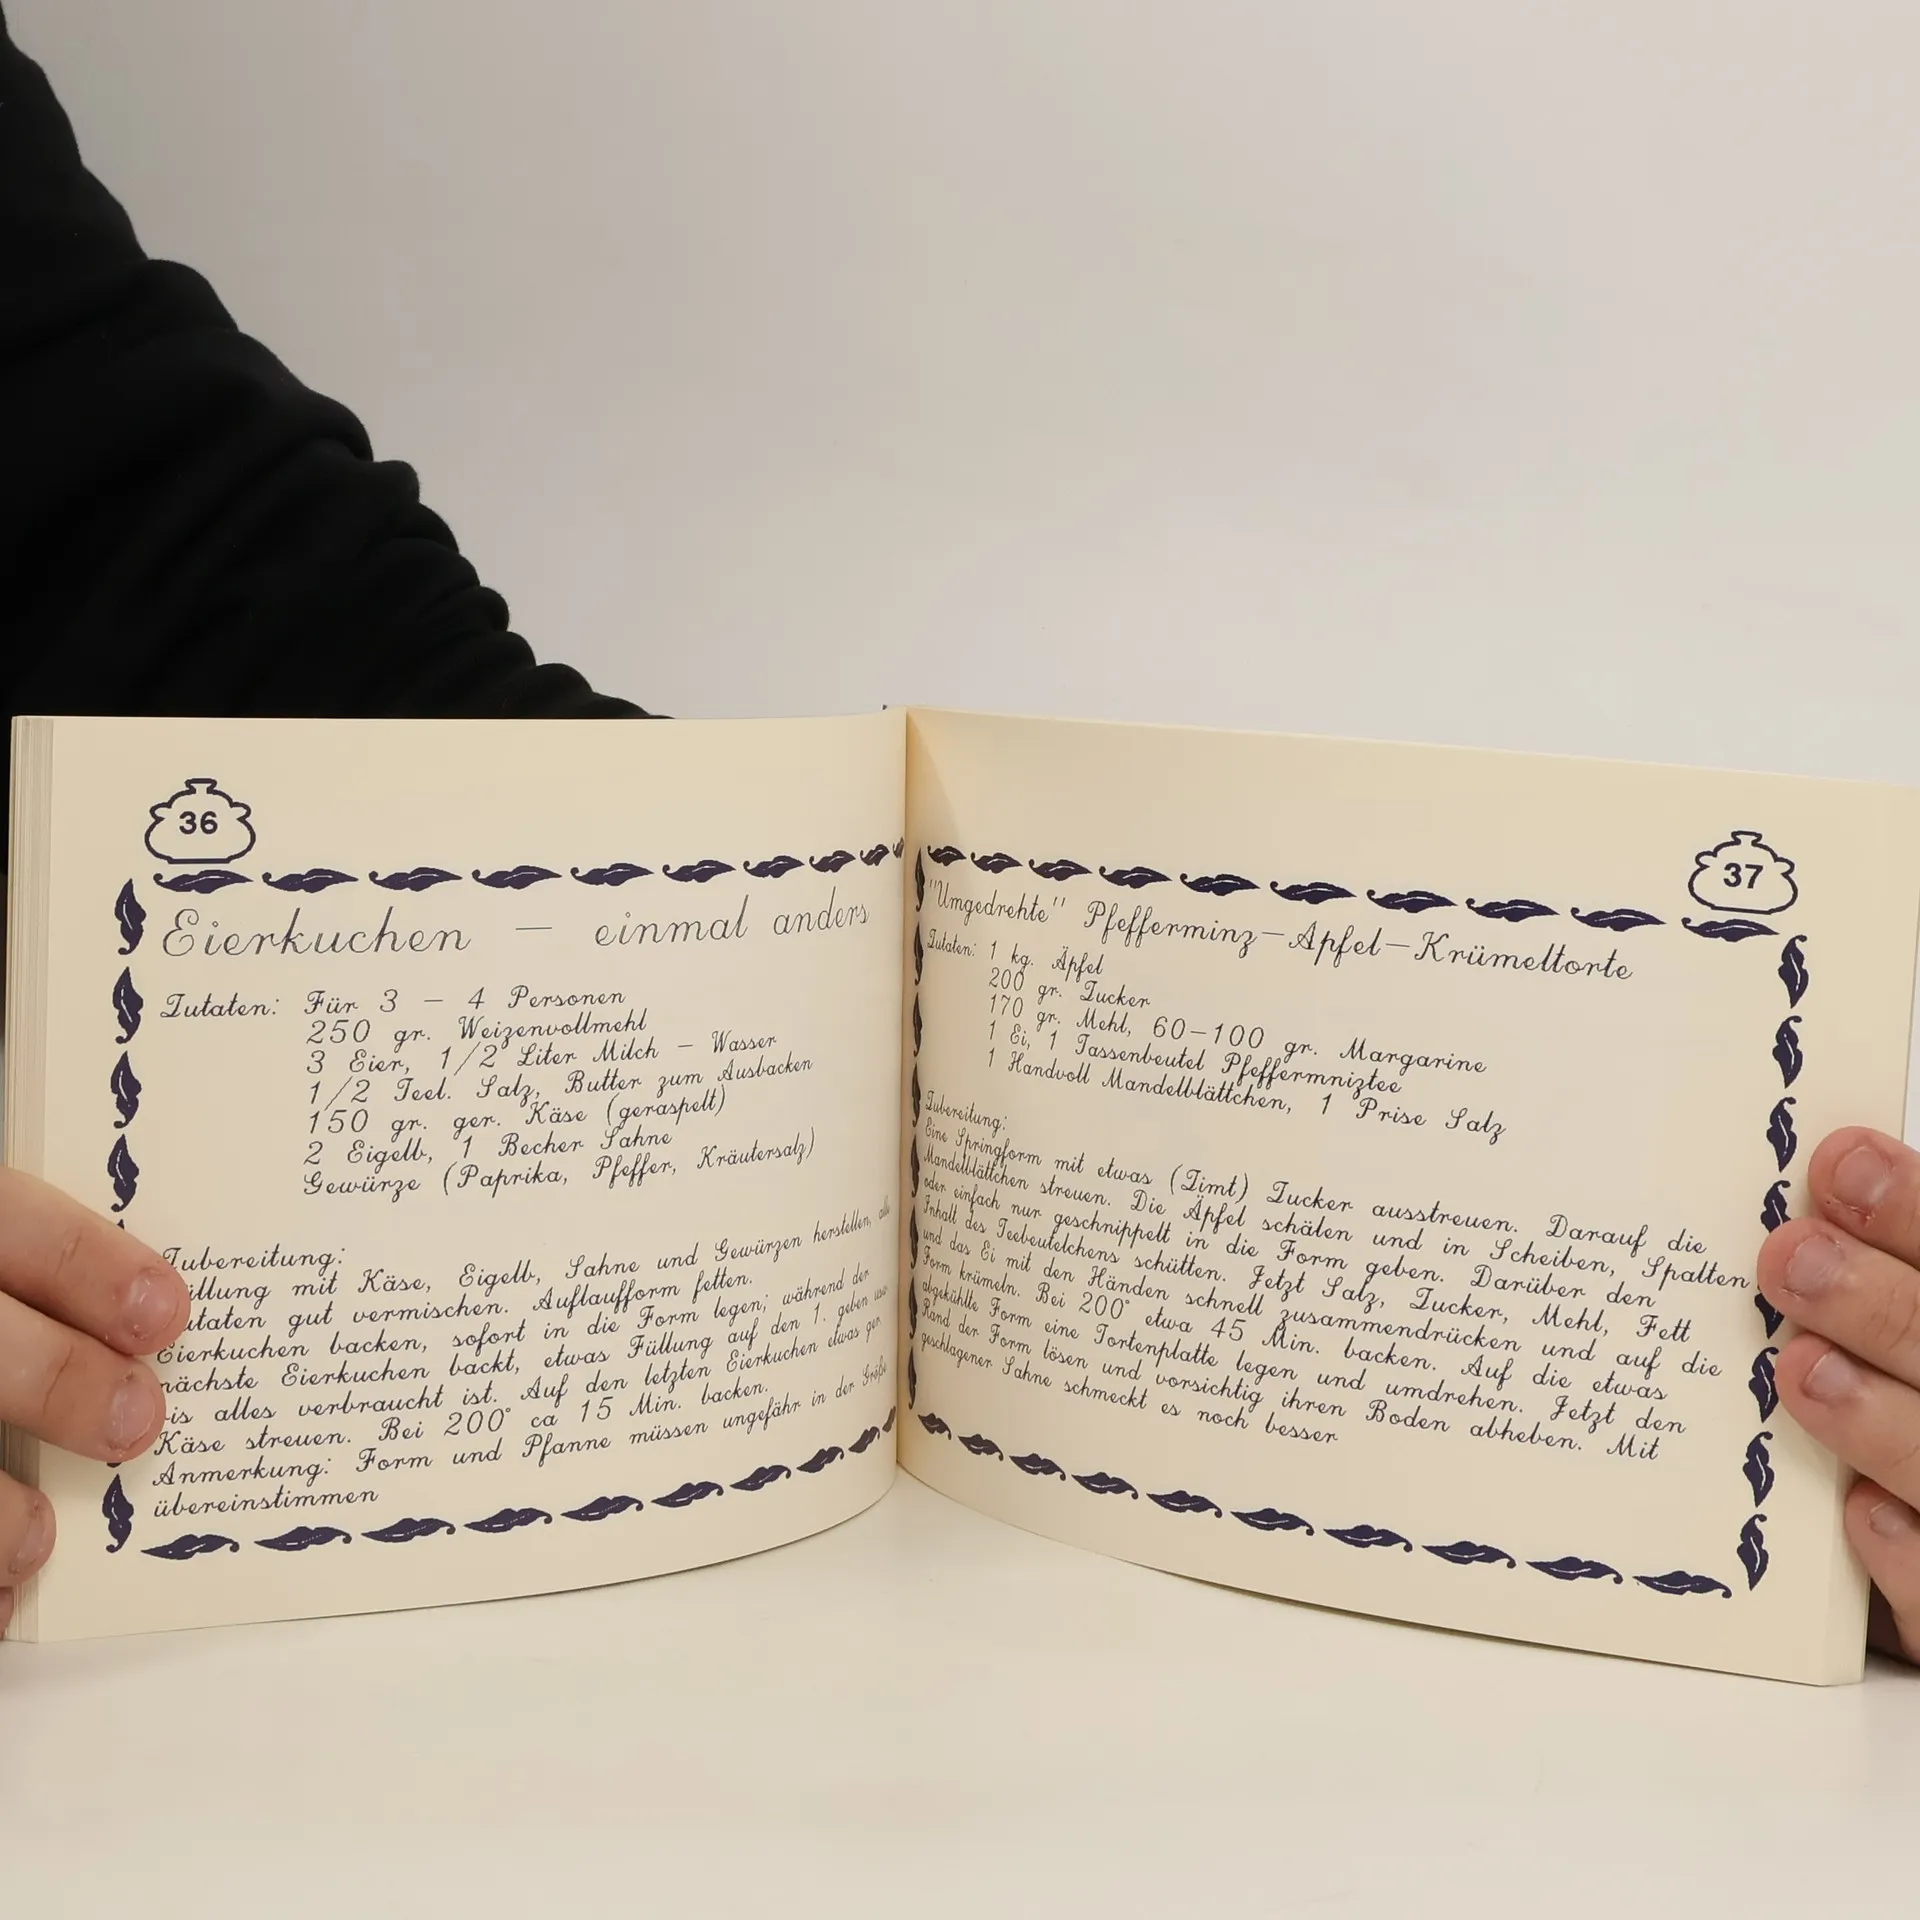 36
Eierkuchen – einmal anders
Zutaten: Für 3 – 4 Personen
250 gr. Weizenvollmehl
3 Eier, 1/2 Liter Milch – Wasser
1/2 Teel. Salz, Butter zum Ausbacken
150 gr. ger. Käse (geraspelt)
2 Eigelb, 1 Becher Sahne
Gewürze (Paprika, Pfeffer, Kräutersalz)
Zubereitung:
mit Käse, Eigelb, Sahne und Gewürzen herstellen, alle
gut vermischen. Auflaufform fetten.
Eierkuchen backen, sofort in die Form legen; während der
nächste Eierkuchen backt, etwas Füllung auf den 1. geben
alles verbraucht ist. Auf den letzten Eierkuchen etwas ger.
Käse streuen. Bei 200° ca 15 Min. backen.
Anmerkung: Form und Pfanne müssen ungefähr in der Größe
übereinstimmen
37
"Umgedrehte" Pfefferminz–Apfel–Krümeltorte
Zutaten: 1 kg. Äpfel
200 gr. Zucker
170 gr. Mehl, 60–100 gr. Margarine
1 Ei, 1 Tassenbeutel Pfeffermniztee
1 Handvoll Mandelblättchen, 1 Prise Salz
Zubereitung:
Eine Springform mit etwas (Zimt) Zucker ausstreuen. Darauf die
Mandelblättchen streuen. Die Äpfel schälen und in Scheiben, Spalten
oder einfach nur geschnippelt in die Form geben. Darüber den
Inhalt des Teebeutelchens schütten. Jetzt Salz, Zucker, Mehl, Fett
und das Ei mit den Händen schnell zusammendrücken und auf die
Form krümeln. Bei 200° etwa 45 Min. backen. Auf die etwas
abgekühlte Form eine Tortenplatte legen und umdrehen. Jetzt den
Rand der Form lösen und vorsichtig ihren Boden abheben. Mit
geschlagener Sahne schmeckt es noch besser